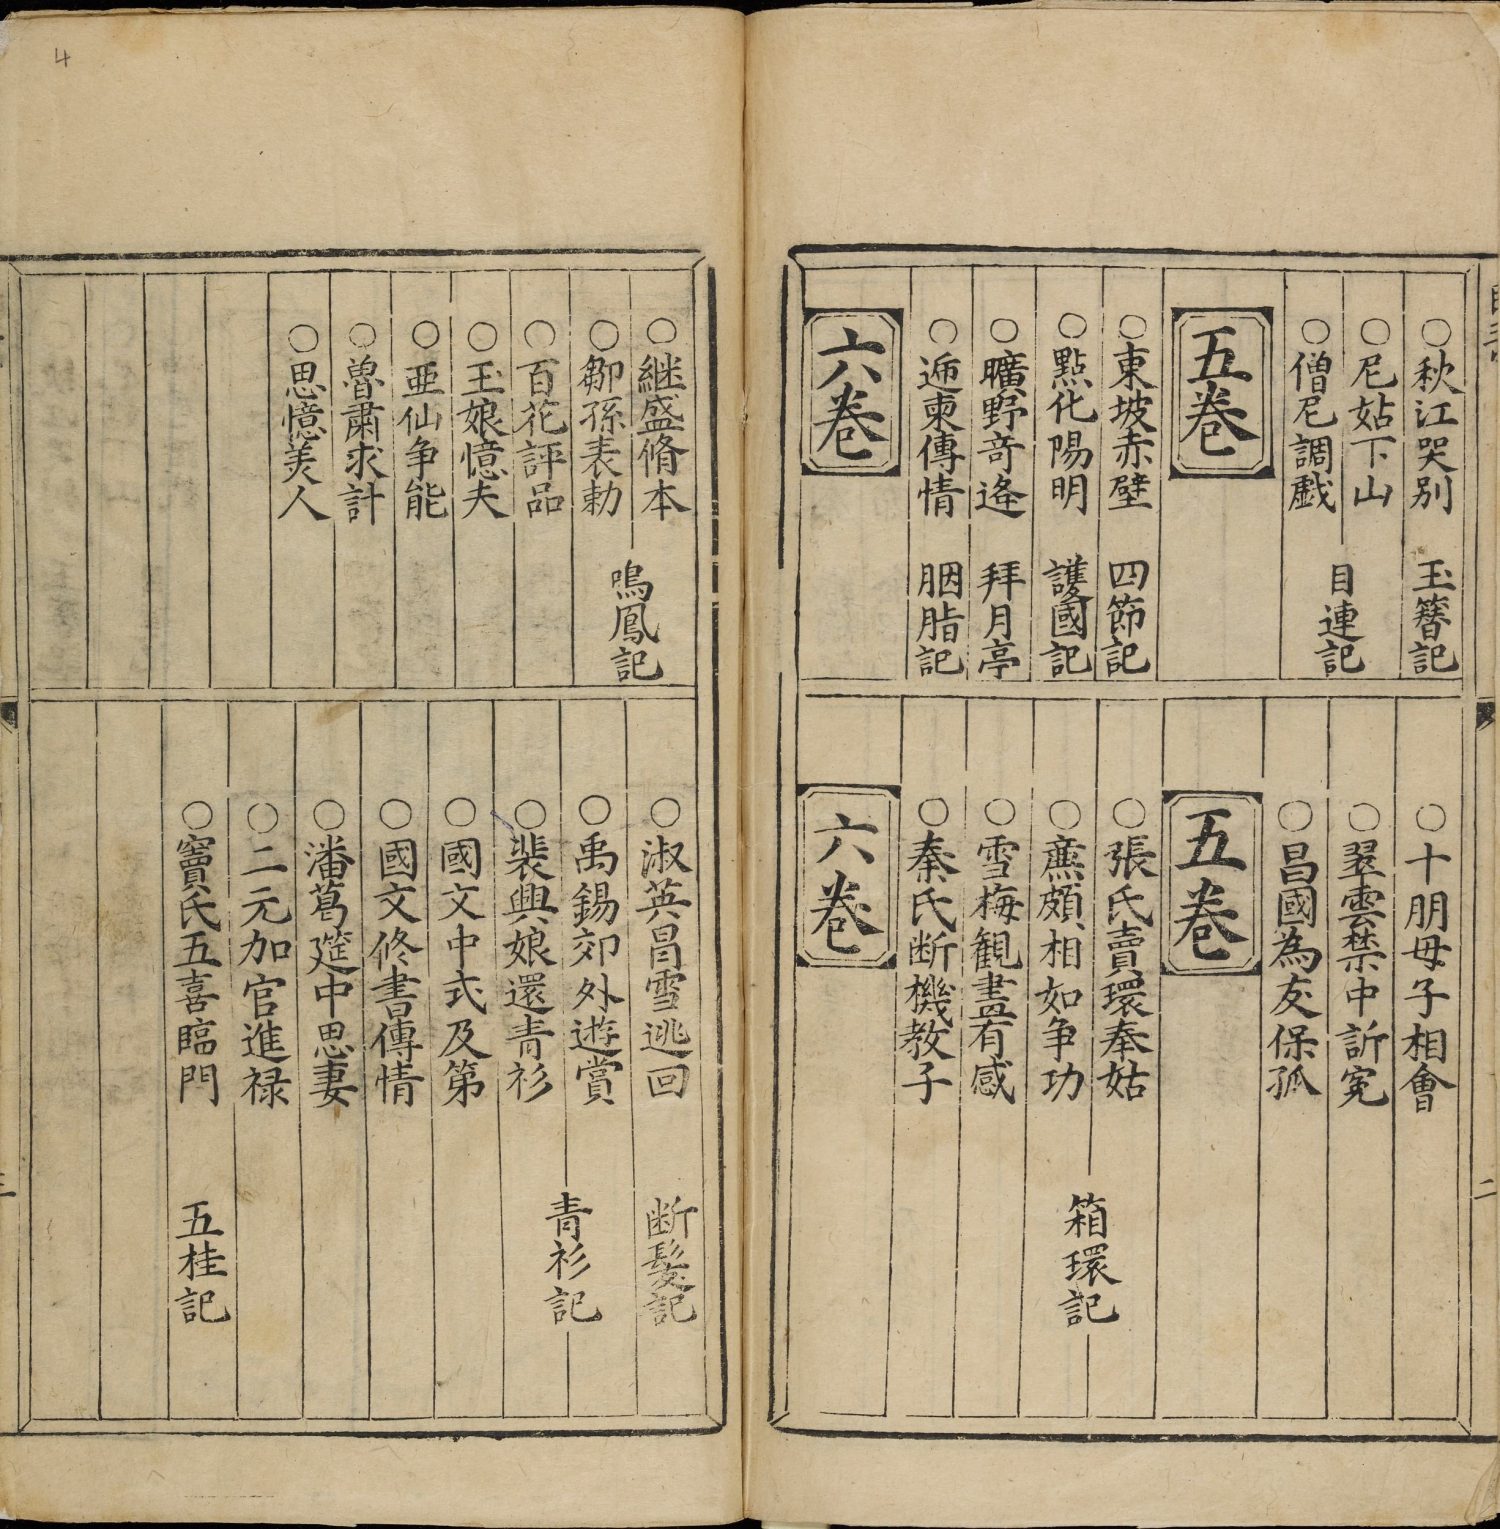 秋江哭别 玉簪記
尼姑下山
僧尼調戲 目連記
五卷
東坡赤壁 四節記
點化陽明 護國記
曠野竒逢 拜月亭
逓柬傳情 胭脂記
六卷
十朋母子相會
翠雲禁中訴寃
昌國為友保孤
五卷
張氏賣環奉姑
廉頗相如争功 箱環記
雪梅観畫有感
秦氏断機教子
六卷
二
継盛脩本
鄒孫表勅 鳴鳳記
百花評品
玉娘憶夫
亜仙争能
魯肅求計
思憶美人
淑英冐雪逃回 断髮記
禹錫郊外遊賞
裴興娘還青衫 青衫記
國文中式及第
國文修書傳情
潘葛筵中思妻
二元加官進禄
竇氏五喜臨門 五桂記
三
4